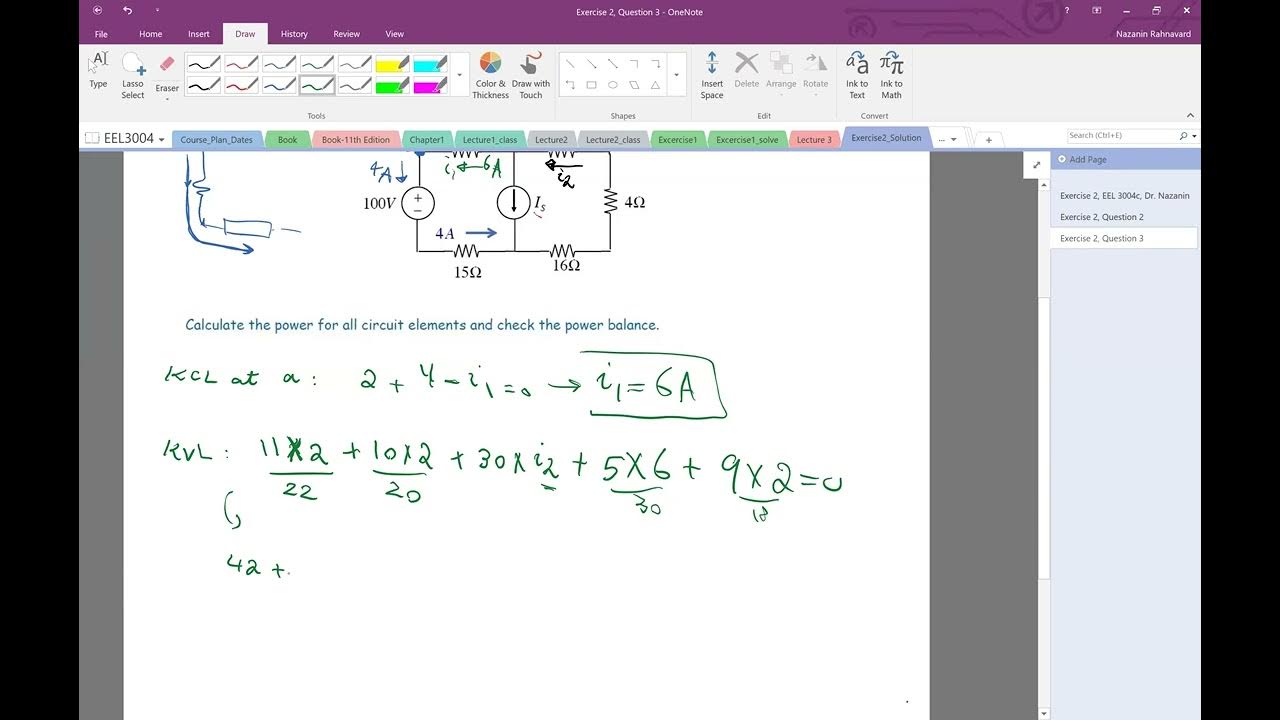 Exercise 2, Question 3 - OneNote
?
File Home Insert Draw History Review View
Nazanin Rahnavard
Type
Lasso Select
Eraser
Color & Thickness
Draw with Touch
Insert Space
Delete
Arrange
Rotate
Ink to Text
Ink to Math
Tools
Shapes
Edit
Convert
EEL3004
Course_Plan_Dates
Book
Book-11th Edition
Chapter1
Lecture1_class
Lecture2
Lecture2_class
Exercise1
Excercise1_solve
Lecture 3
Exercise2_Solution
...
+
Search (Ctrl+E)
Add Page
Exercise 2, EEL 3004c, Dr. Nazanin
Exercise 2, Question 2
Exercise 2, Question 3
4A
i₁
6A
i₂
100V
+
−
Iₛ
4Ω
4A
15Ω
16Ω
Calculate the power for all circuit elements and check the power balance.
KCL at a: 2 + 4 - i₁ = 0 → i₁ = 6A
KVL: 11×2 + 10×2 + 30×i₂ + 5×6 + 9×2 = 0
22 20 30 18
42 +